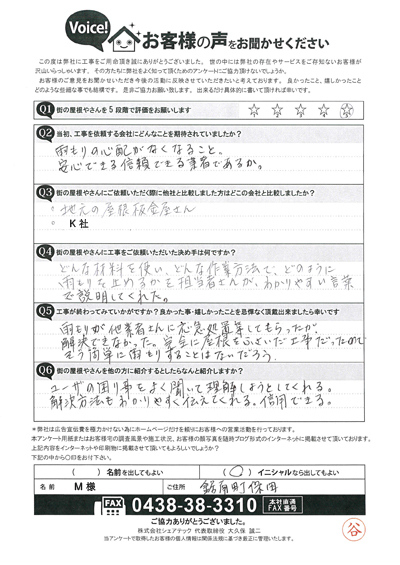 Voice!
お客様の声をお聞かせください
この度は弊社に工事をご用命頂き誠にありがとうございました。世の中には弊社の存在やサービスをご存知ないお客様が
沢山いらっしゃいます。その方たちに弊社をよく知って頂くためのアンケートにご協力頂けないでしょうか。
お客様のご意見をお聞かせいただき今後の活動に反映させていただきたいと考えております。良かったこと、嬉しかったこと
どのような些細な事でも結構です。是非ご協力お願い致します。出来るだけ具体的に書いて頂ければ幸いです。
Q1 街の屋根やさんを5段階で評価をお願いします
☆ ☆ ☆ ☆ ☆
Q2 当初、工事を依頼する会社にどんなことを期待されていましたか?
雨もりの心配がなくなること。
安心できる信頼できる業者であるか。
Q3 街の屋根やさんにご依頼いただく際に他社と比較しました方はどこの会社と比較しましたか?
。地元の屋根板金屋さん
。K社
Q4 街の屋根やさんに工事をご依頼いただいた決め手は何ですか?
どんな材料を使い、どんな作業方法で、どのように
雨もりを止めるかを担当者さんが、わかりやすい言葉
で説明してくれた。
Q5 工事が終わってみていかがですか?良かった事・嬉しかったことを忌憚なく頂戴出来ましたら幸いです
雨もりが他業者さんに応急処置等してもらったが、
解決できなかった。完全に屋根をふさいだ工事だったので
もう簡単に雨もりすることはないだろう。
Q6 街の屋根やさんを他の方に紹介するとしたらなんと紹介しますか?
ユーザの困り事をよく聞いて理解しようとしてくれる。
解決方法もわかりやすく伝えてくれる。信用できる。
※弊社は広告宣伝費を極力かけない為にホームページだけを頼りにお客様への営業活動を行っております。
本アンケート用紙またはお客様宅の調査風景や施工状況、お客様の顔写真を随時ブログ形式のインターネットに掲載させて頂いております。
上記内容をインターネットや印刷物に掲載させて頂いてもよろしいでしょうか?
下記の中から〇印をお付け下さい。
( )名前を出してもよい (〇)イニシャルなら出してもよい
名前 M様 ご住所 鋸南町保田
FAX 0438-38-3310 本社直通 FAX番号
ご協力ありがとうございました。
株式会社シェアテック 代表取締役 大久保 誠二
当アンケートで取得したお客様の個人情報は関係法規に基づき厳正に管理いたします。
谷